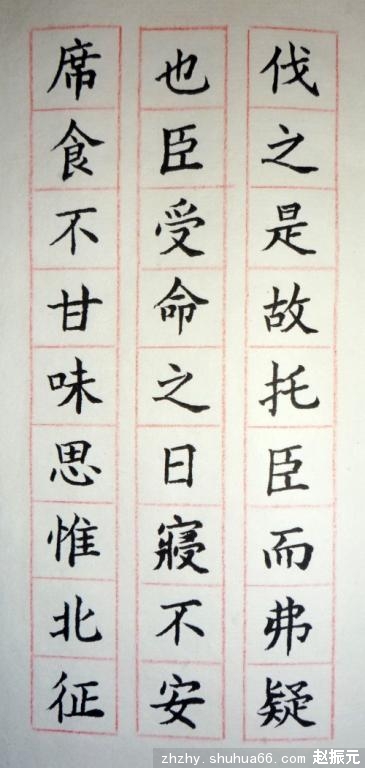 伐之是故托臣而弗疑
也臣受命之日寢不安
席食不甘味思惟北征
zhzhy.shuhua66.com 赵振元